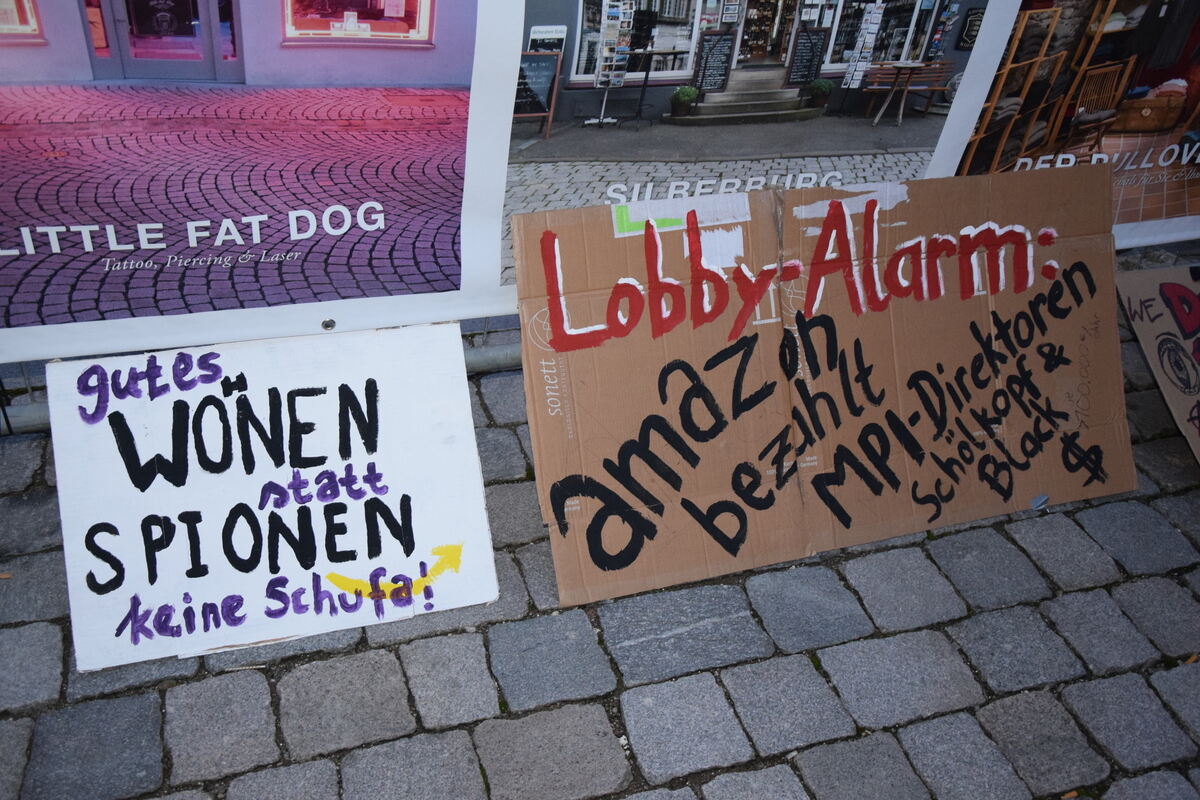 LITTLE FAT DOG
Tattoo, Piercing & Laser
SILBERBURG
DER PULLOV
gutes
WÖNEN
statt
SPIONEN
keine Schufa!
Lobby-Alarm:
amazon
bezahlt
MPI-Direktoren
Schölkopf &
Black
$
sonett
WE